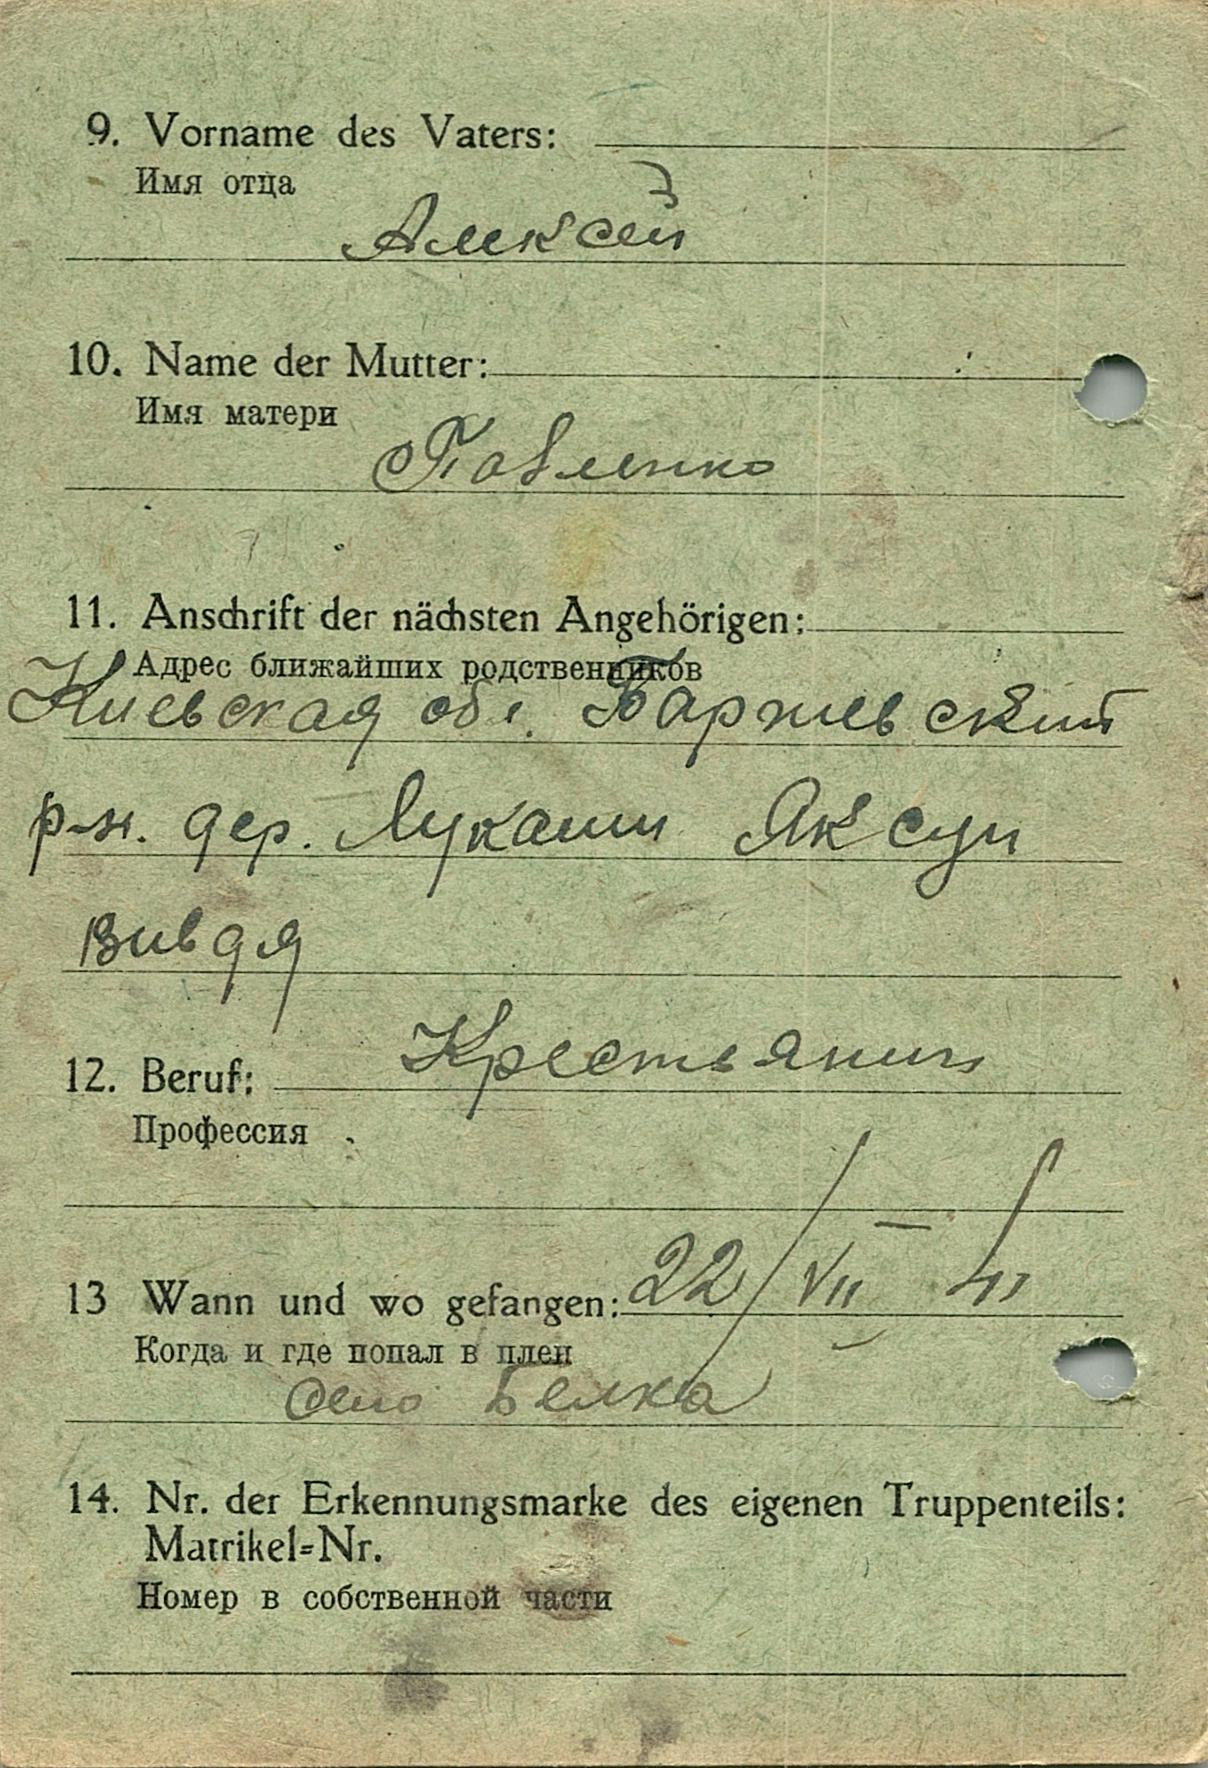 9. Vorname des Vaters:
Имя отца
Алексей
10. Name der Mutter:
Имя матери
Павленко
11. Anschrift der nächsten Angehörigen:
Адрес ближайших родственников
Киевская обл. Барышевский
р-н. дер. Лукаши Яксун
Вивдя
12. Beruf:
Крестьянин
Профессия
13 Wann und wo gefangen: 22/VII - 41
Когда и где попал в плен
село Белка
14. Nr. der Erkennungsmarke des eigenen Truppenteils:
Matrikel=Nr.
Номер в собственной части